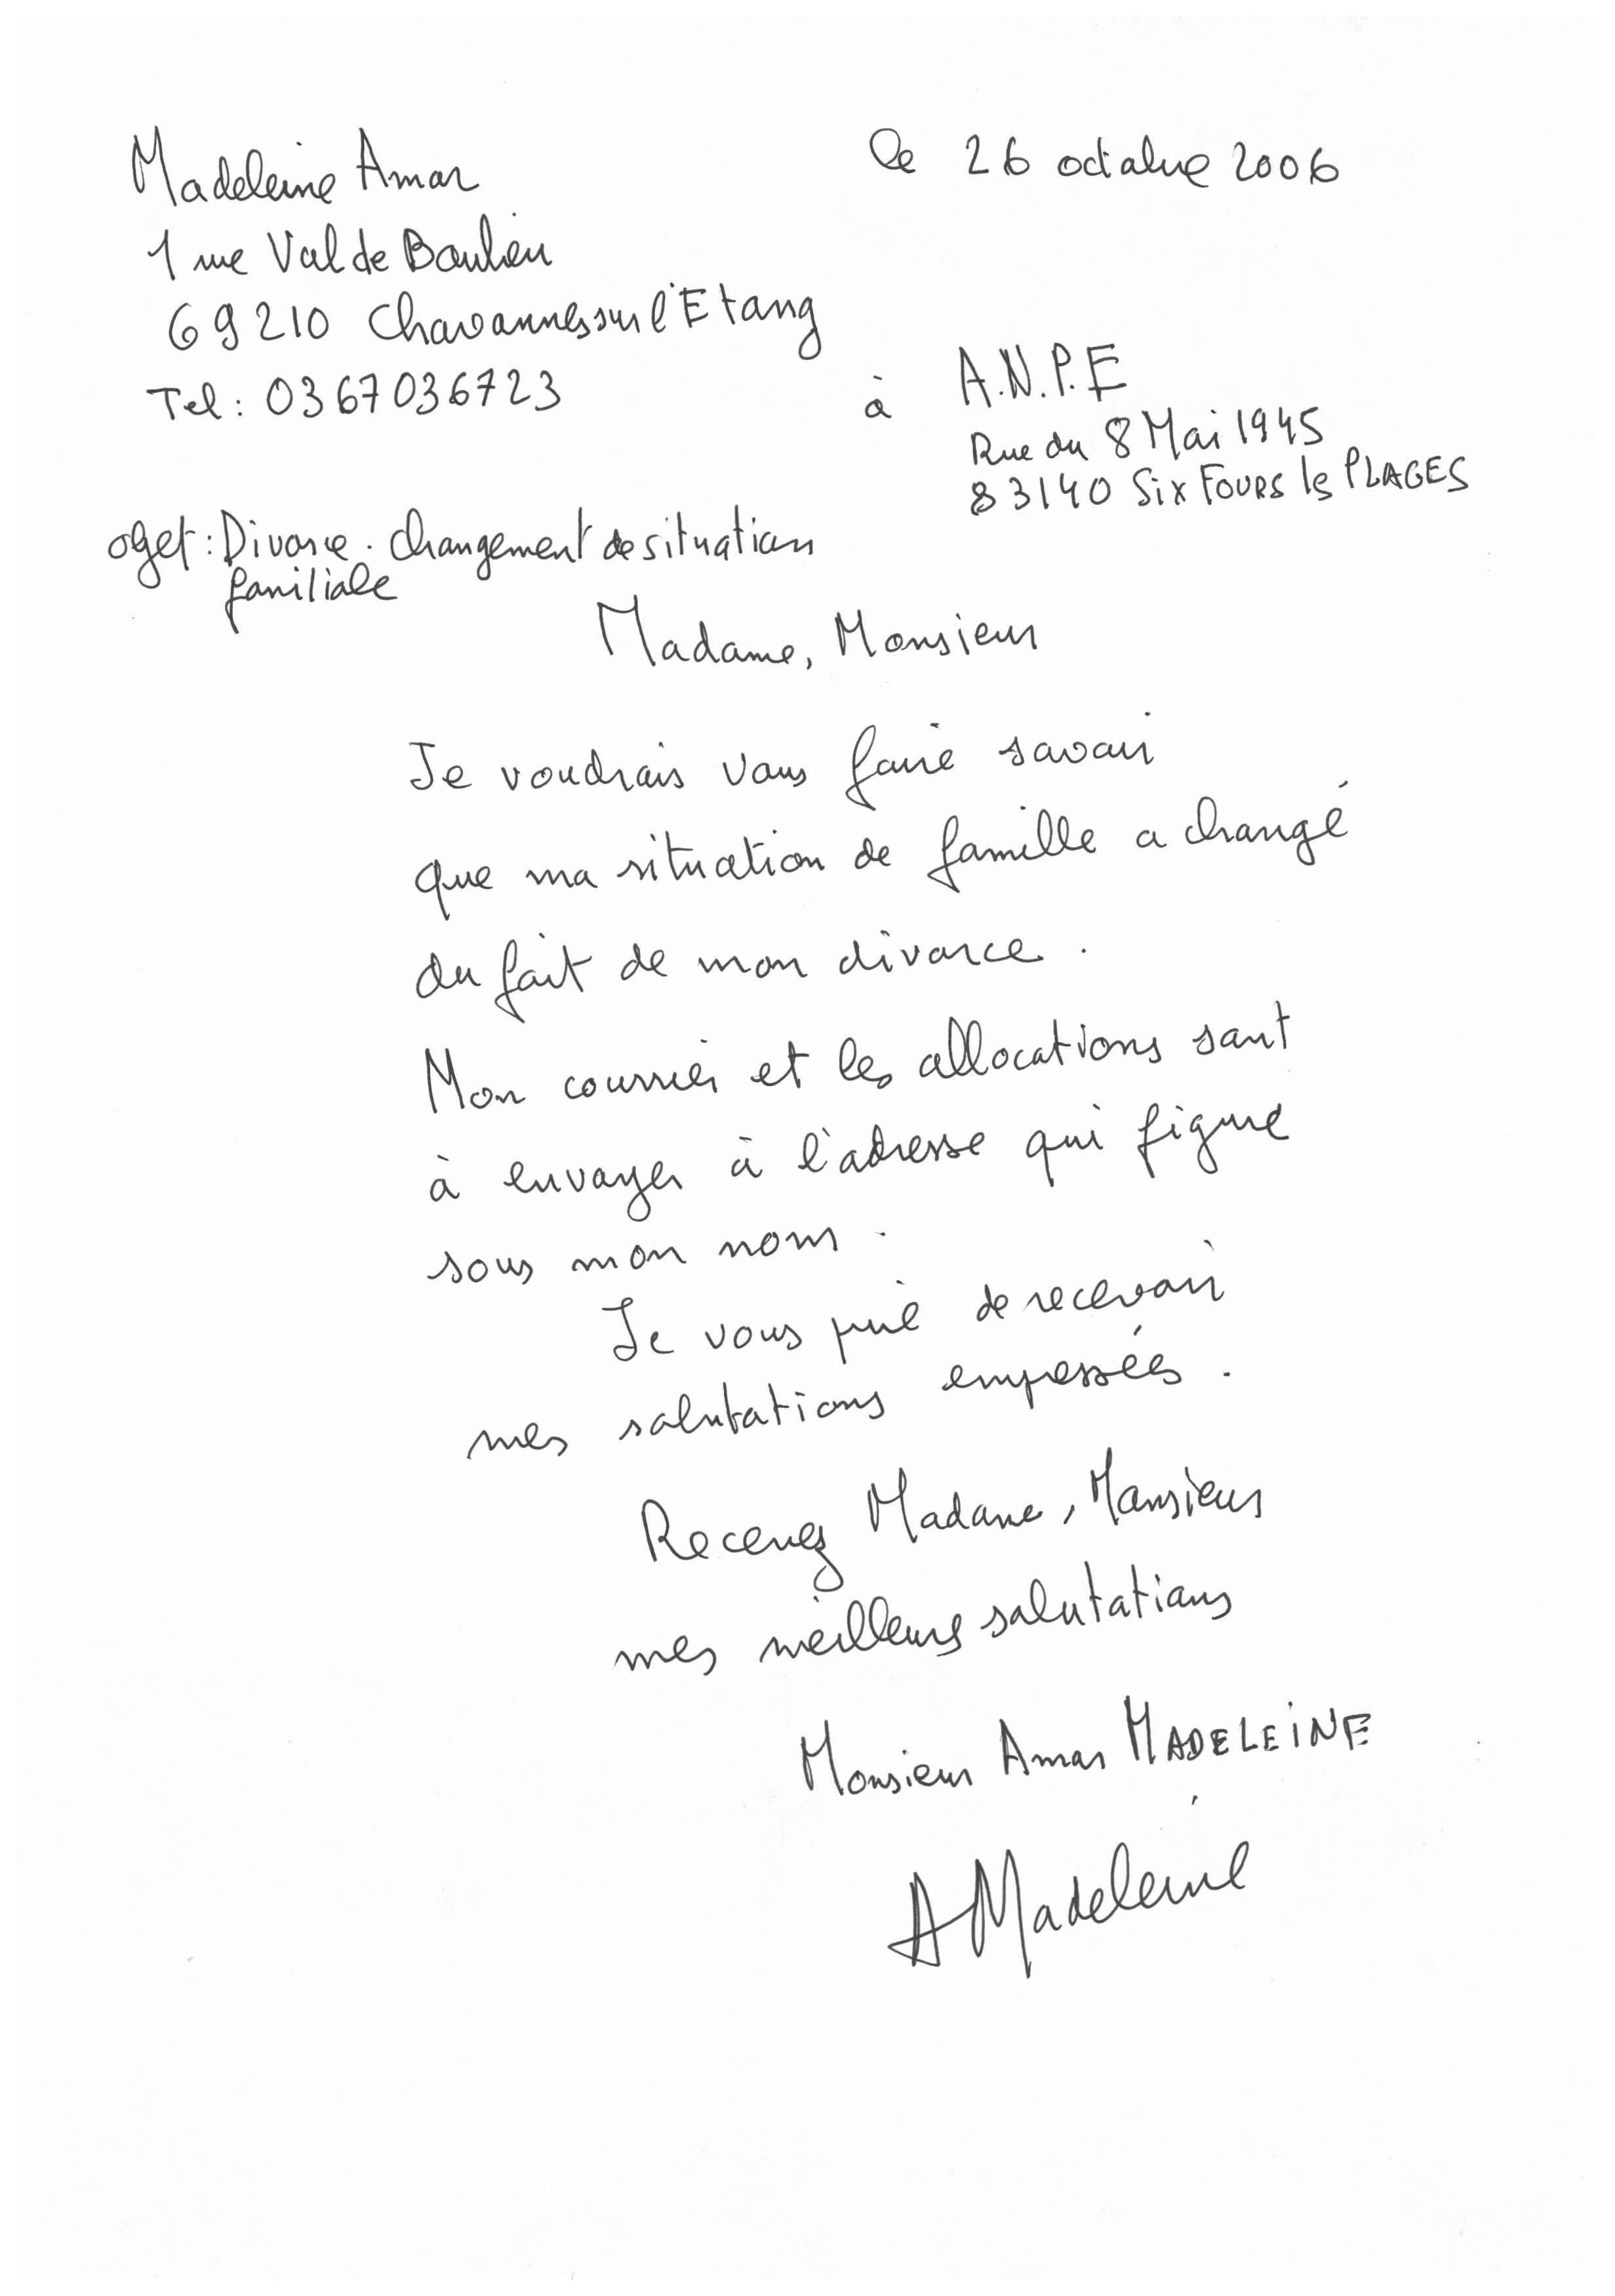 Madeleine Amar
le 26 octobre 2006
1 rue Val de Boulieu
69210 Chavannes sur l'Etang
Tel : 0367036723
à A.N.P.E
Rue du 8 Mai 1945
83140 Six Fours les PLAGES
Ojet : Divorce. changement de situation
familiale
Madame, Monsieur
Je voudrais vous faire savoir
que ma situation de famille a changé
du fait de mon divorce.
Mon courrier et les allocations sont
à envoyer à l'adresse qui figure
sous mon nom.
Je vous prie de recevoir
mes salutations empessées.
Recevez Madame, Monsieur
mes meilleurs salutations
Monsieur Amar MADELEINE
AMadeleine